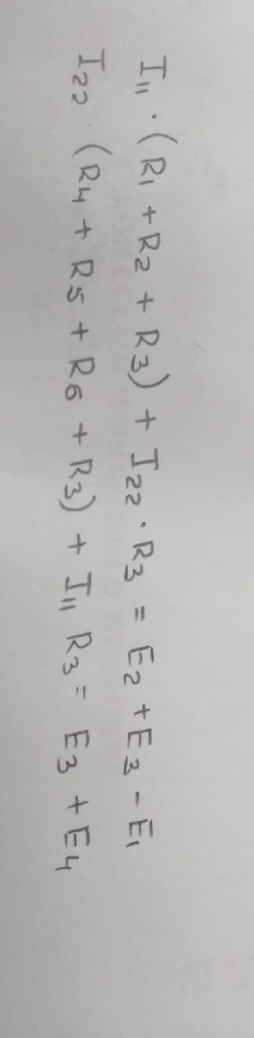 I₁₁ · (R₁ + R₂ + R₃) + I₂₂ · R₃ = E₂ + E₃ - E₁
I₂₂ · (R₄ + R₅ + R₆ + R₃) + I₁₁ R₃ = E₃ + E₄